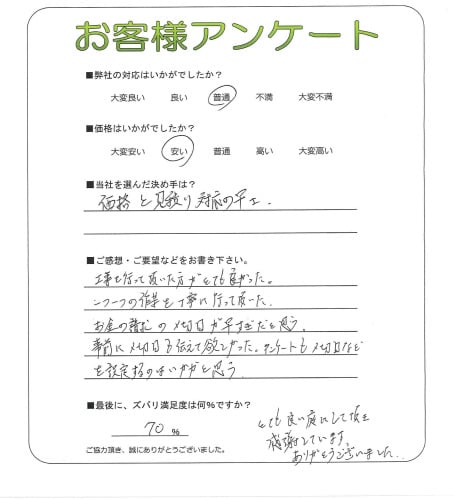 お客様アンケート
■弊社の対応はいかがでしたか?
大変良い 良い 普通 不満 大変不満
■価格はいかがでしたか?
大変安い 安い 普通 高い 大変高い
■当社を選んだ決め手は?
価格と見積り対応の早さ.
■ご感想・ご要望などをお書き下さい。
工事を行って頂いた方がとても良かった。
一つ一つの作業を丁寧に行って頂いた.
お金の の〆切日が早すぎだと思う.
事前に〆切日も伝えて欲しかった。アンケートも〆切日など
を設定するのはいかがと思う.
■最後に、ズバリ満足度は何%ですか?
70 %
とても良い庭にして頂き
感謝しています。
ありがとうございました.
ご協力頂き、誠にありがとうございました。